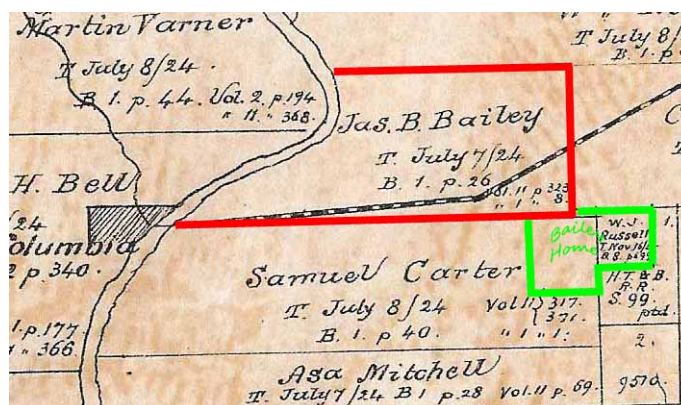 Martin Varner
T July 8/24.
B 1. p. 44. Vol. 2. p. 194
" 11. " 368.
T July 8/24
B. 1. p.
Jas. B. Bailey
T. July 7/24
B. 1. p. 26
Vol. 11. p 323
" 1 " 8.
H. Bell
/24
Columbia
2 p. 340.
1. p. 177.
" 366.
Samuel Carter
T. July 8/24
B. 1. p 40.
Vol 11 } 317.
371.
" 1 " 1:
Bailey
Home
W. J.
Russell
T. Nov 16/
B. 8. p
1.
H. T. & B.
R. R.
S. 99.
ptd.
2.
Asa Mitchell
T. July 7/24 B 1 p. 28 Vol. 11 p. 69.